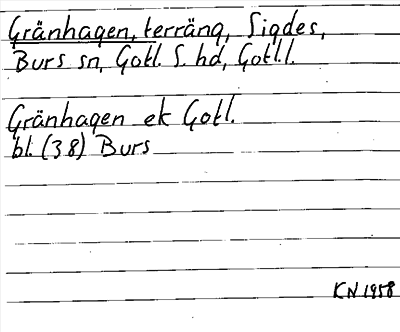 Gränhagen, terräng, Sigdes,
Burs sn, Gotl. S. hd, Gotl. l.
Gränhagen ek Gotl.
bl. (38) Burs
KN 1958